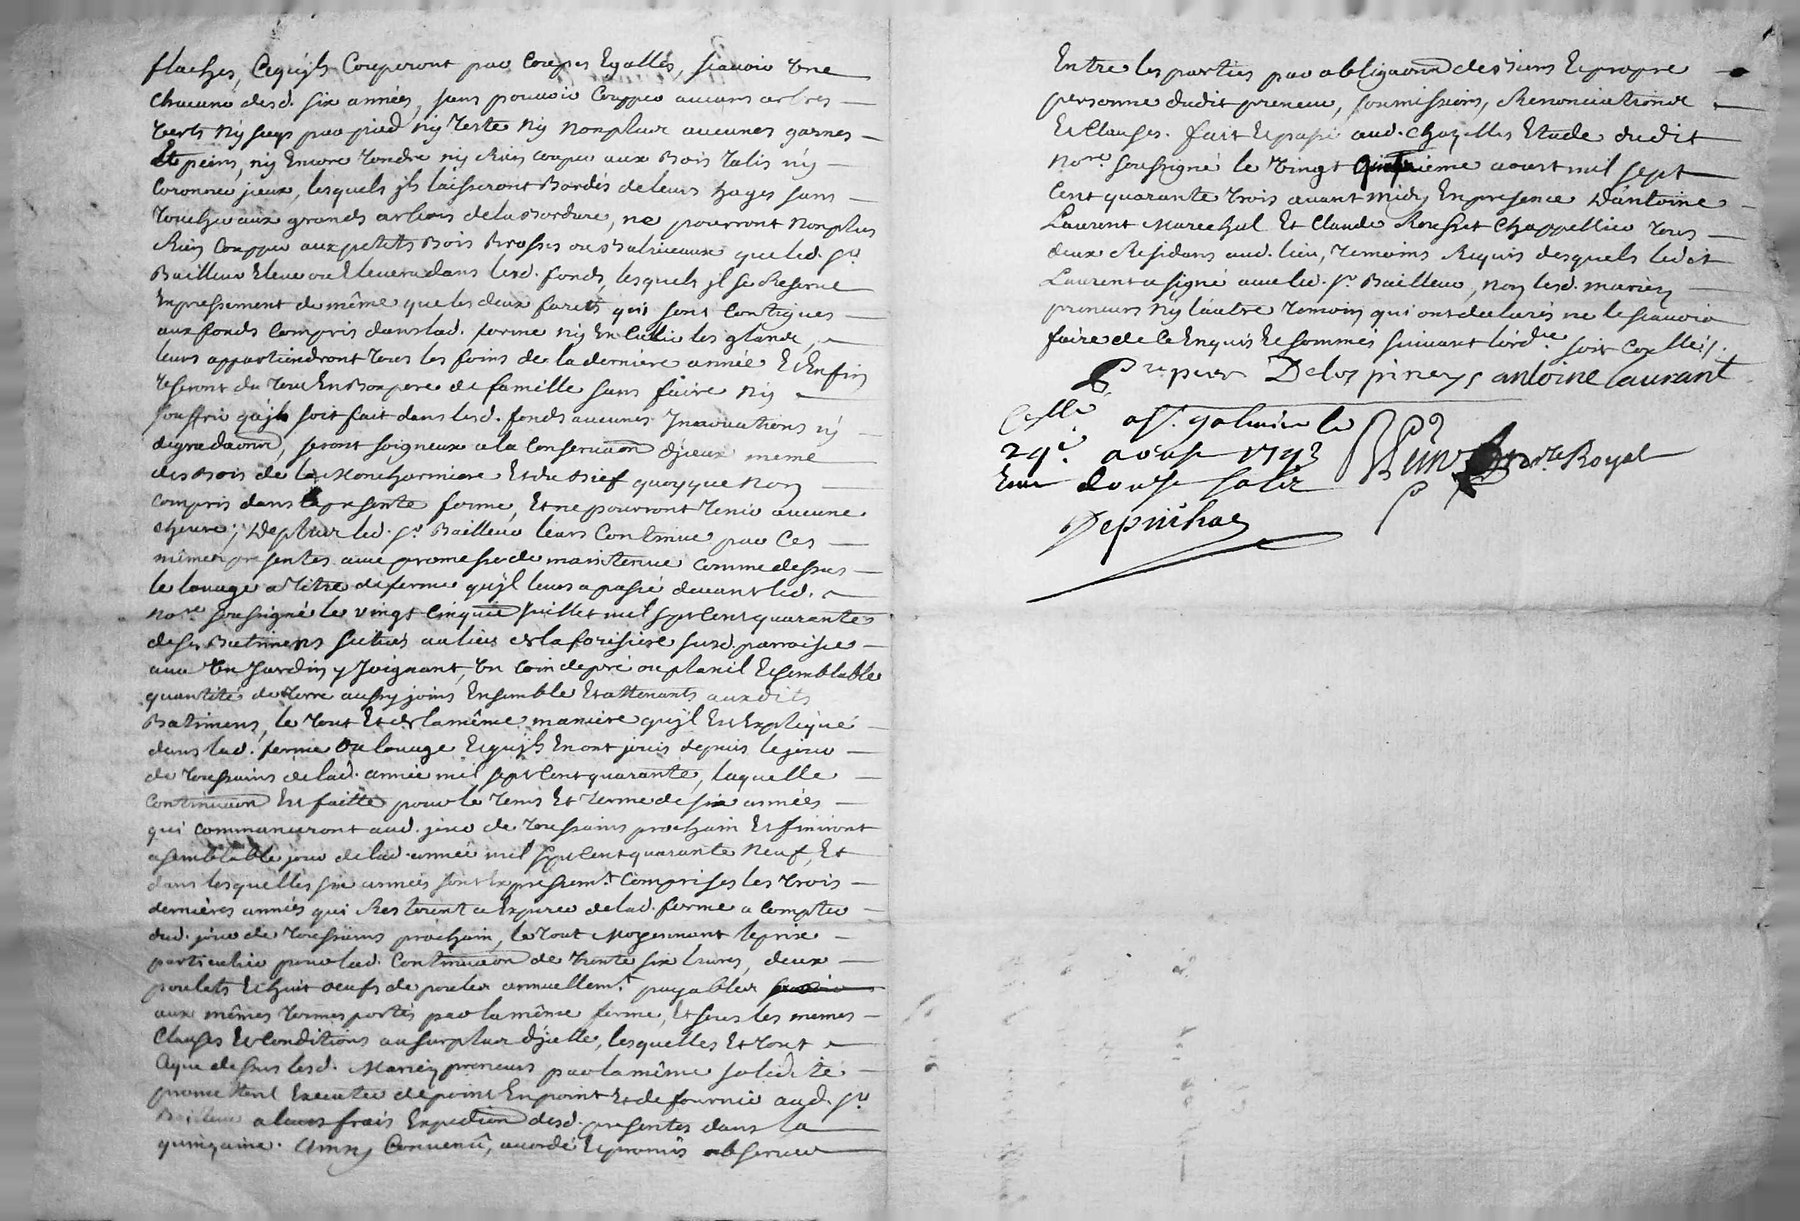 flaches, Cequ'jls Couperont par Coupes Egalles, scavoir Une
chacune desd. six années, sans pouvoir Coupper aucuns arbres
verts Ny secqs par pied Ny Teste Ny Non plus aucunes garnes
Et peins, ny Encore Tondre ny Rien couper aux Bois Talis n'y
Coronnee jceux, lesquels jls laisseront Bordés de leurs hayes sans
Toucher aux grands arbres de la Bordure, ne pourront Nonplus
Rien Coupper aux petits Bois Brosses ou Baliveaux que led. Sr.
Bailleur Eleve ou Elevera dans lesd. fonds, lesquels jl se Reserve
Expressement de même que les deux forets qui sont Contigues
aux fonds Compris dans lad. ferme ny En Cuilir les glands,
leurs appartiendront Tous les foins de la derniere année Et Enfin
Useront du Tout En Bon pere de famille sans faire Ny
souffrir qu'jl soit fait dans lesd. fonds aucunes Jnovations ny
degradaons, seront soigneux a la Conservaon d'jceux meme
des Bois de la Moncharniere Et du Bief quoyque Non
Compris dans la presente ferme, Et ne pourront Tenir aucune
chevre; De plus led. Sr. Bailleur leurs Continue par Ces
mêmes presentes avec promesse de maintenue Comme dessus
le louage a Titre de ferme qu'jl leurs a passé devant led.
Nore. soussigné le vingt Cinquie Juillet mil sept Cent quarante
de ses Batimens situés au lieu de la forisiere susd. parroisse
avec Un Jardin y Joignant, Un Coin de pré ou planil Et semblable
quantité de Terre aussy joins Ensemble Et attenants auxdits
Batimens, le Tout Et de la même maniere qu'jl Est Expliqué
dans lad. ferme Ou louage Et qu'jls En ont joui depuis le jour
de Toussains de lad. année mil sept Cent quarante, laquelle
Continuaon Est faitte pour le Tems Et Terme de six années
qui Commanceront aud. jour de Toussains prochain Et finiront
a semblable jour de lad. année mil sept Cent quarante Neuf, Et
dans lesquelles six années sont Expressemt. Comprises les Trois
dernières années qui Resteront a Expirer de lad. ferme a Compter
dud. jour de Toussains prochain, le Tout Moyennant le prix
particulier pour lad. Continuaon de Trente six livres, deux
poulets Et huit oeufs de poules annuellemt. payables
aux mêmes Termes portés par la même ferme, Et sous les memes
Clauses Et Conditions au surplus d'jcelle, lesquelles Et Tout
Ceque dessus lesd. Mariés preneurs par la même solidité
promettent Executer de point En point Et de fournir aud. Sr.
Bailleur a leurs frais Expedition desd. presentes dans la
quinzaine. Ainsy Convenû, accordé Et promis observer
Entre les parties par obligaonn des biens Et propre
personne dudit preneur, soumissions, Renonciations
Et Clauses. fait Et passé aud. Chazelles Etude dudit
Nore. soussigné le vingt quatrieme aoust mil sept
Cent quarante Trois avant midy En presence D'antoine
Laurent Marechal Et Claude Chappellier Tous
deux Residans aud. lieu, Temoins Requis desquels ledit
Laurent a signé avec led. Sr. Bailleur, Non lesd. mariés
preneurs Ny l'autre Temoin qui ont declarés ne le scavoir
faire de Ce Enquis Et sommés suivant l'orde. soit Conllé.
Delospineys antoine laurant
Conllé a St. galmier le
29e. aoust 1743 Nre. Royal
Reçu douse sols
Depuihas